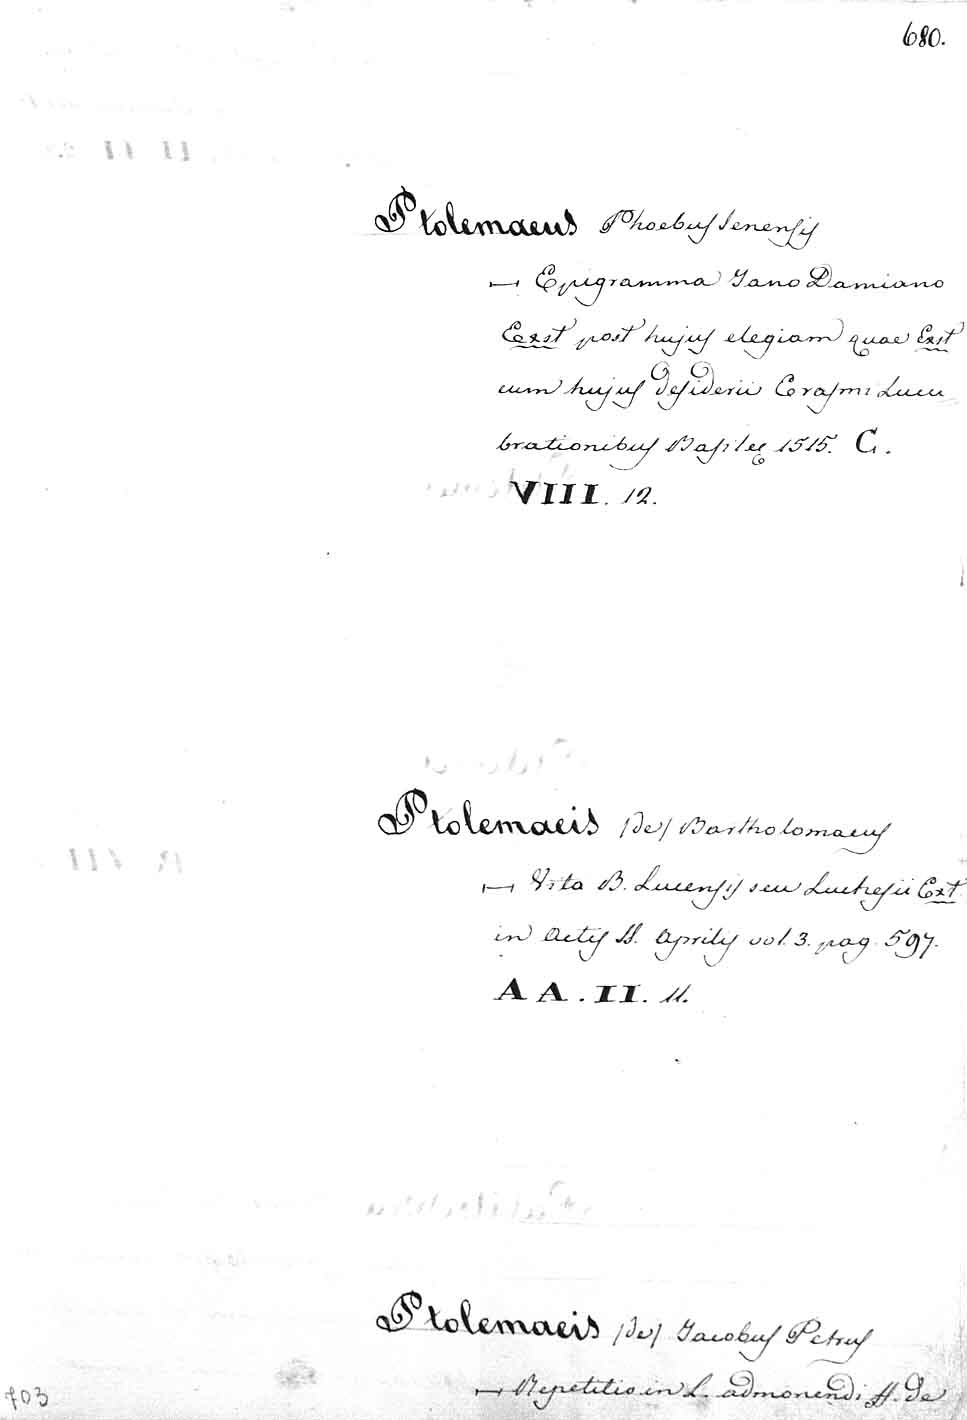 680.
Ptolemaeus Phoebus Senensis
— Epigramma Jano Damiano
Exst post hujus elegiam quae Exst
cum hujus desiderii Erasmi Lucu
brationibus Basileę 1515. C.
VIII. 12.
Ptolemaeis (de) Bartholomaeus
— Vita B. Lucensis seu Luchesii Ext.
in Actis SS. Aprilis vol. 3. pag. 597.
A A . II. 11.
Ptolemaeis (de) Jacobus Petrus
— Repetitio in L. admonendi ff. de
703